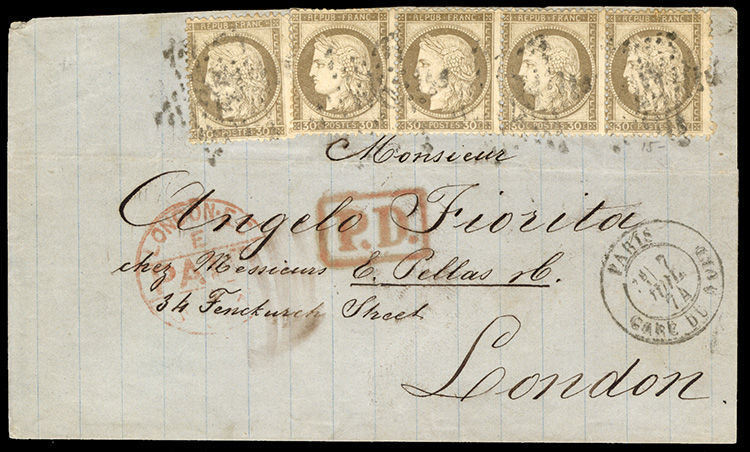 REPUB·FRANC· REPUB·FRANC· REPUB·FRANC· REPUB·FRANC· REPUB·FRANC·
30 POSTES 30 30C POSTES 30 30C POSTES 30 30C POSTES 30 30C POSTES 30
15-
Monsieur
Angelo Fiorita
P.D.
LONDON·E.C
E
PA
chez Messieurs E. Pellas &C.
34 Fenchurch Street
London
PARIS
7
JUIL
74
GARE DU NORD